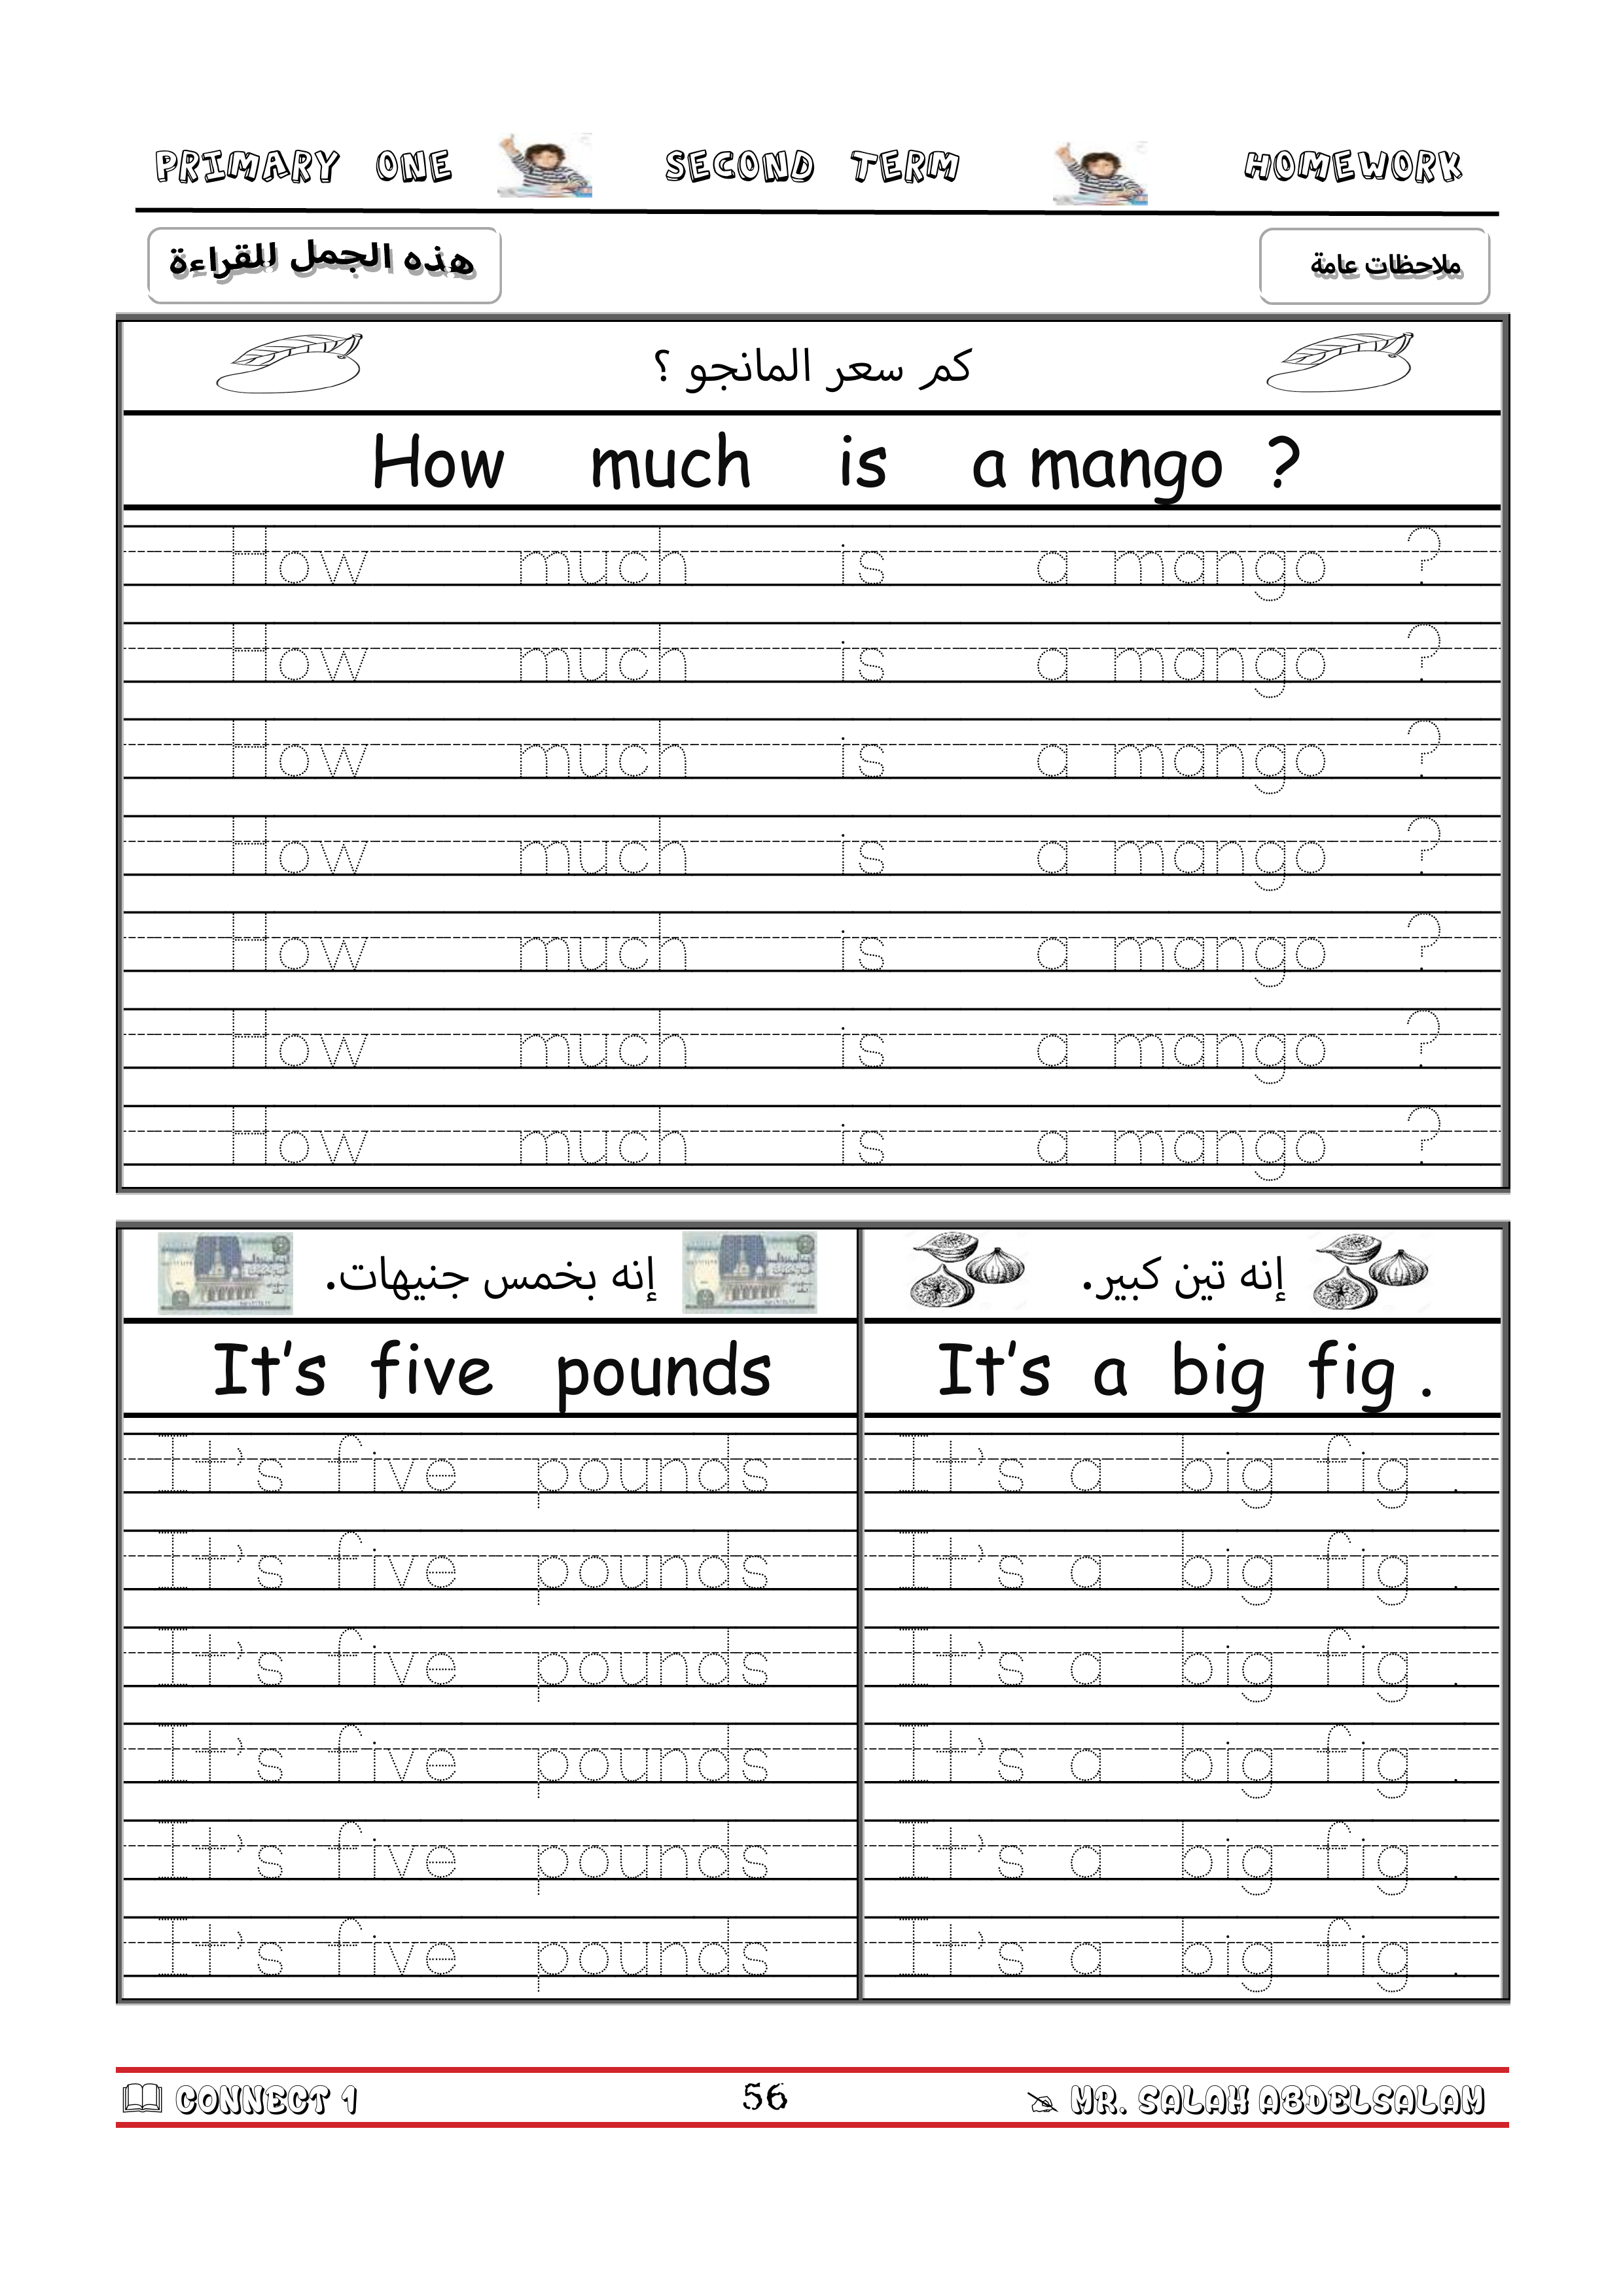 PRIMARY ONE SECOND TERM HOMEWORK
هذه الجمل للقراءة
ملاحظات عامة
كم سعر المانجو ؟
How much is a mango ?
How much is a mango ?
How much is a mango ?
How much is a mango ?
How much is a mango ?
How much is a mango ?
How much is a mango ?
How much is a mango ?
إنه بخمس جنيهات.
It's five pounds
It's five pounds
It's five pounds
It's five pounds
It's five pounds
It's five pounds
It's five pounds
إنه تين كبير.
It's a big fig .
It's a big fig .
It's a big fig .
It's a big fig .
It's a big fig .
It's a big fig .
It's a big fig .
CONNECT 1 56 MR. SALAH ABDELSALAM